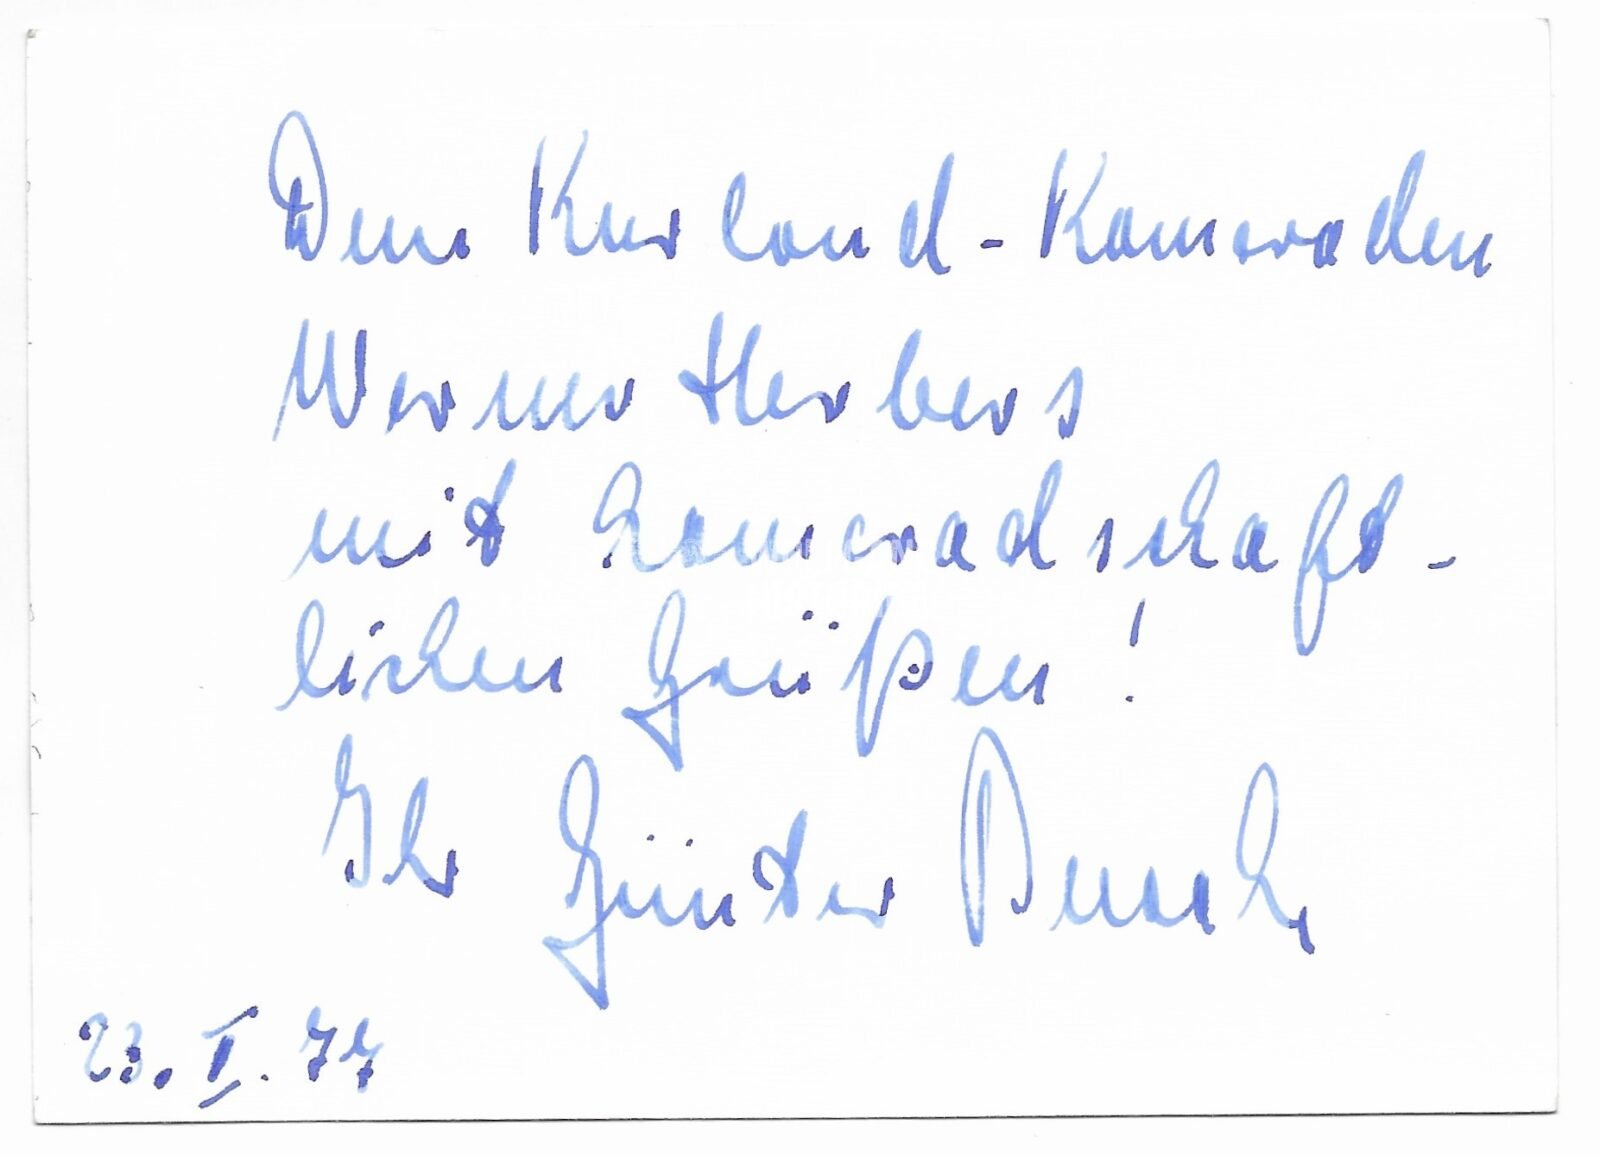 Dem Kurland-Kameraden
Werner Herbers
mit kameradschaft-
lichen Grüßen!
Ihr Günter
23. I. 77